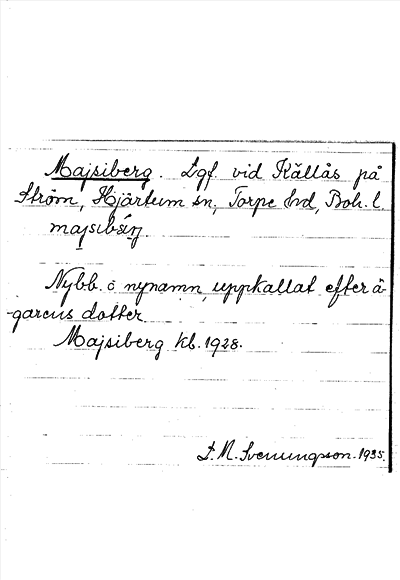 Majsiberg. Lgf. vid Källås på
Ström, Hjärtum sn, Torpe hd, Boh. l.
Nybb. o nynamn, uppkallat efter ä-
garens dotter.
Majsiberg kb. 1928.
S. N. Svenungson. 1935.